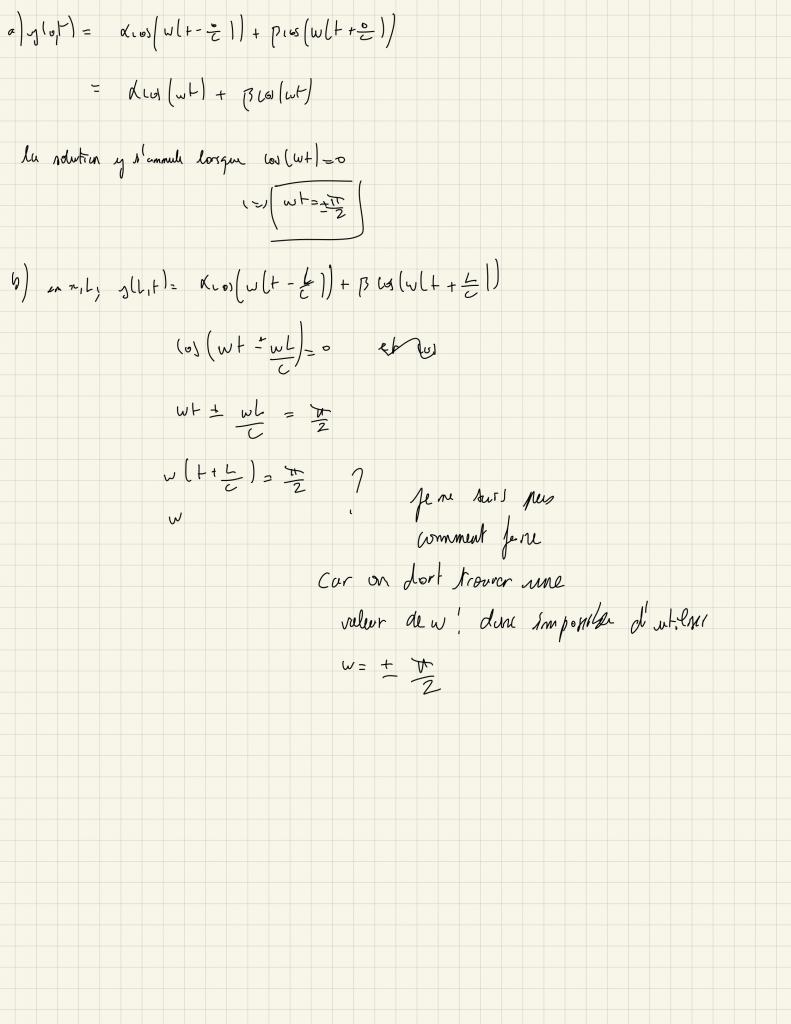 a) y(0,t) = αcos(w(t-0/c)) + βcos(w(t+0/c))
= αcos(wt) + βcos(wt)
la solution y s'annule lorsque cos(wt)=0
(=) wt=±π/2
b) en x=L, y(L,t)= αcos(w(t-L/c)) + βcos(w(t+L/c))
cos(wt ± wL/c)=0 et cos
wt ± wL/c = π/2
w(t+L/c)=π/2 ?
w
Je ne sais pas
comment faire
Car on doit trouver une
valeur de w! donc impossible d'utiliser
w= ± π/2